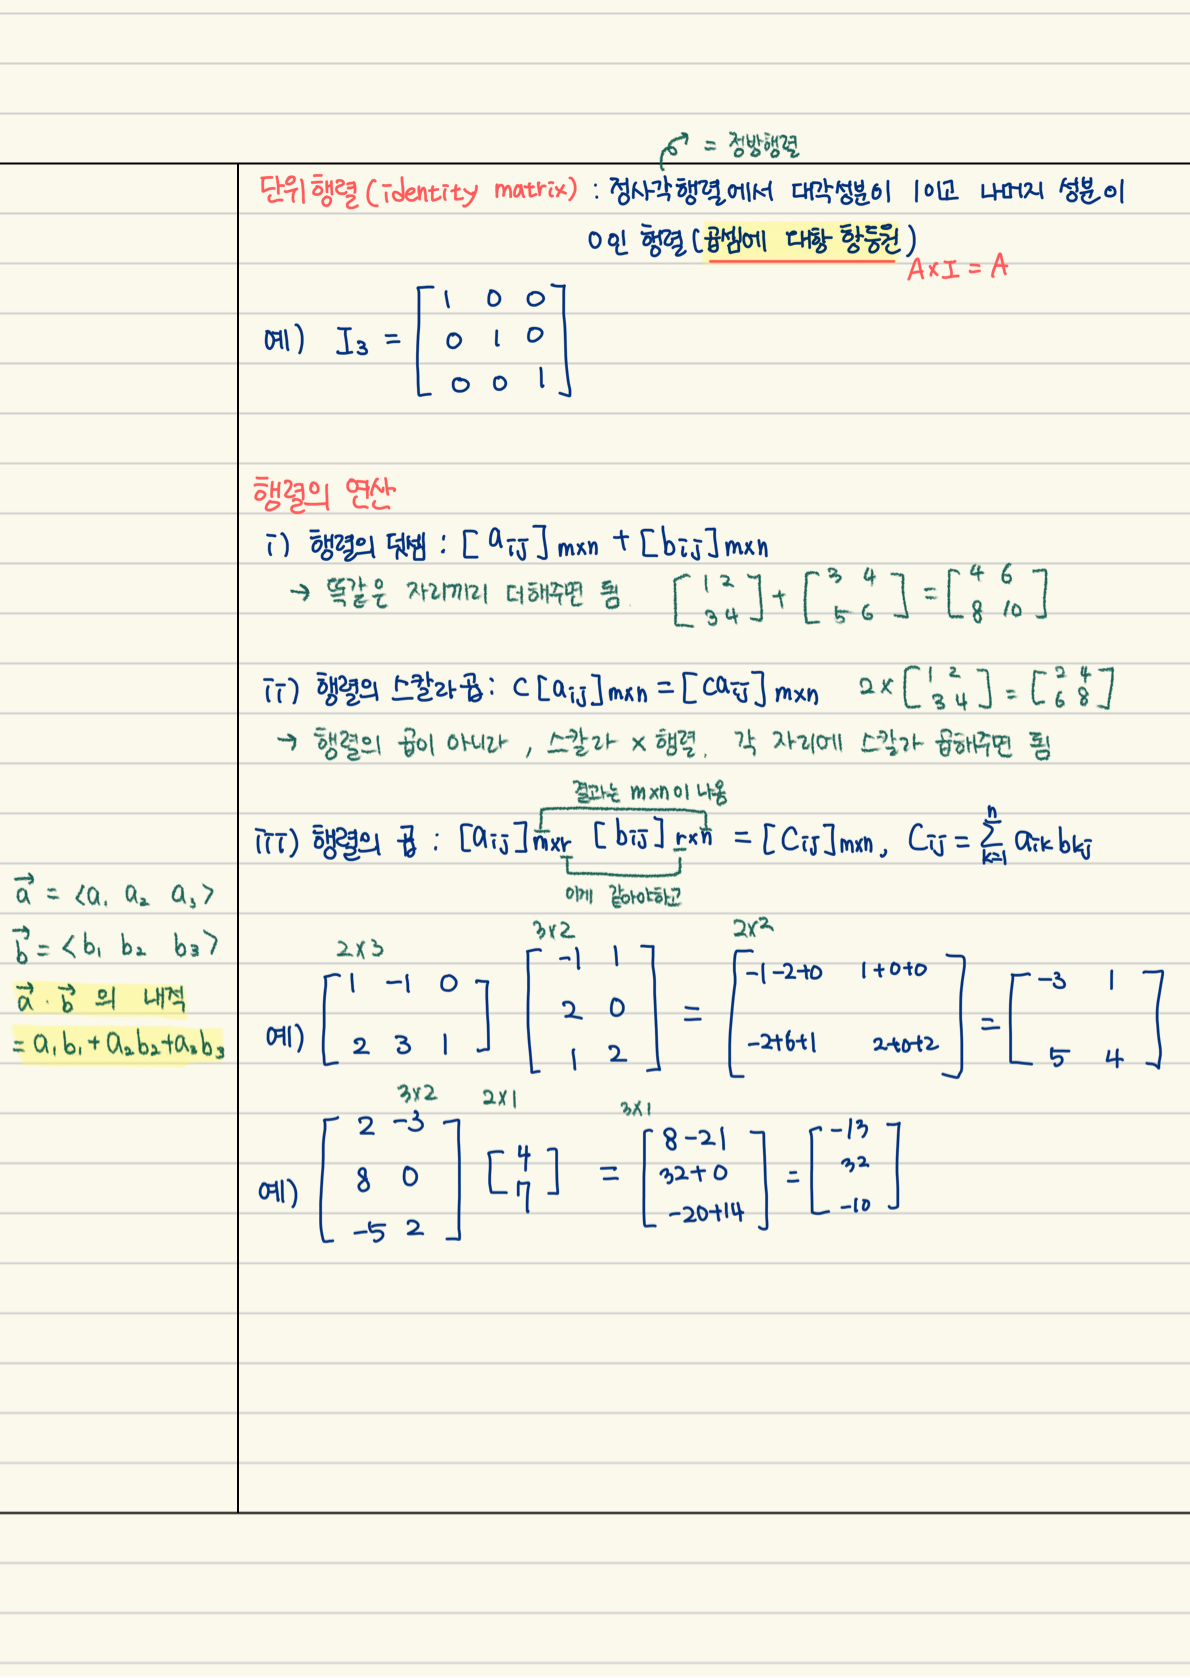 = 정방행렬
단위행렬(identity matrix) : 정사각행렬에서 대각성분이 1이고 나머지 성분이
0인 행렬(곱셈에 대항 항등원)
A×I = A
예) I₃ = [1 0 0
0 1 0
0 0 1]
행렬의 연산
i) 행렬의 덧셈 : [aij]m×n + [bij]m×n
→ 똑같은 자리끼리 더해주면 됨. [1 2 / 3 4] + [3 4 / 5 6] = [4 6 / 8 10]
ii) 행렬의 스칼라곱 : c[aij]m×n = [caij]m×n 2×[1 2 / 3 4] = [2 4 / 6 8]
→ 행렬의 곱이 아니라, 스칼라 × 행렬. 각 자리에 스칼라 곱해주면 됨
결과는 m×n이 나옴
iii) 행렬의 곱 : [aij]m×r [bij]r×n = [Cij]m×n, Cij = Σ(k=1, n) aik bkj
이게 같아야하고
a⃗ = <a₁ a₂ a₃>
b⃗ = <b₁ b₂ b₃>
a⃗ · b⃗ 의 내적
= a₁b₁ + a₂b₂ + a₃b₃
2×3 3×2 2×2
예) [1 -1 0 / 2 3 1] [-1 1 / 2 0 / 1 2] = [-1-2+0 1+0+0 / -2+6+1 2+0+2] = [-3 1 / 5 4]
3×2 2×1 3×1
예) [2 -3 / 8 0 / -5 2] [4 / 7] = [8-21 / 32+0 / -20+14] = [-13 / 32 / -10]